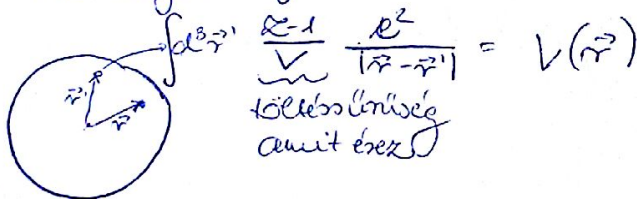 ∫d³r⃗' (z-1)/V e²/|r⃗-r⃗'| = V(r⃗)
r⃗' r⃗ töltéssűrűség
amit érez